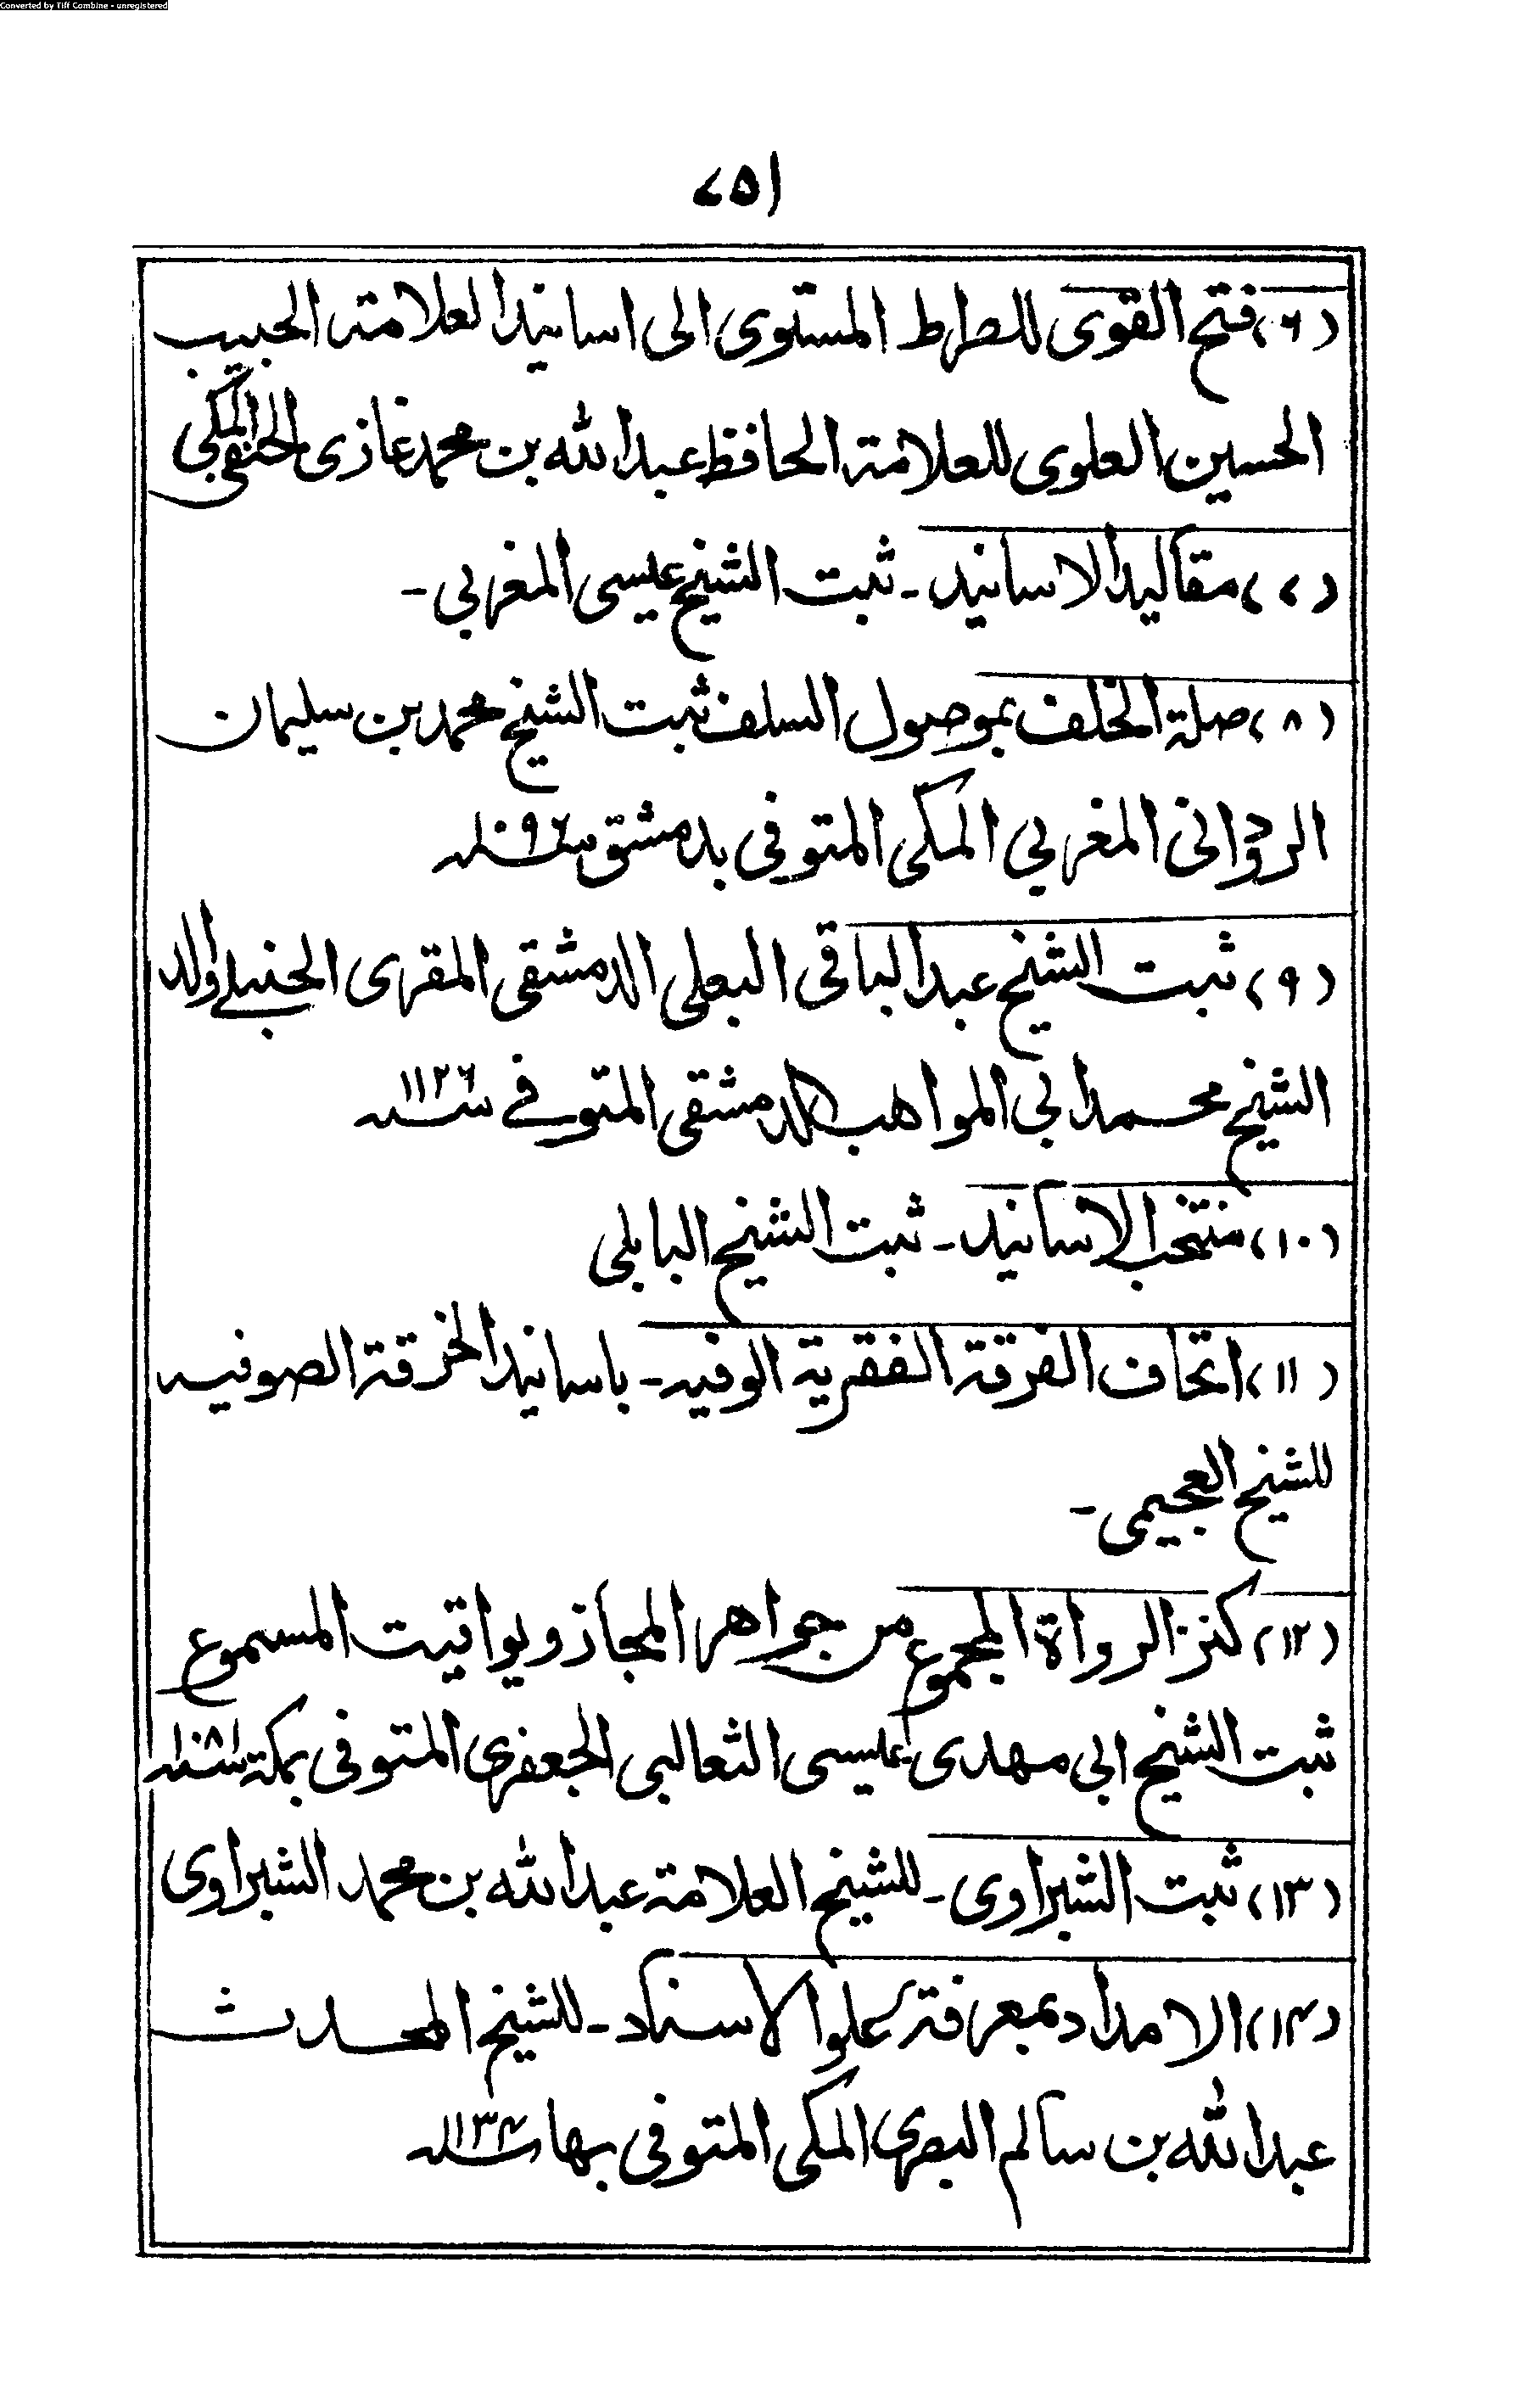 Converted by Tiff Combine - unregistered
۷۵۱
(۶) فتح القوی للصراط المستوی الی اسانید العلامة الحبیب
الحسین العلوی للعلامة الحافظ عبد الله بن محمد غازی الحنفی المکی
(۷) مقالید الاسانید - ثبت الشیخ عیسی المغربی -
(۸) صلة الخلف بموصول السلف ثبت الشیخ محمد بن سلیمان
الردوانی المغربی المکی المتوفی بدمشق
(۹) ثبت الشیخ عبد الباقی البعلی الدمشقی المقری الحنبلی والد
الشیخ محمد ابی المواهب الدمشقی المتوفی سنه ۱۱۲۶
(۱۰) منتخب الاسانید - ثبت الشیخ البابلی
(۱۱) اتحاف الفرقة الفقریة الوفیه - باسانید الخرقة الصوفیه
للشیخ العجیمی -
(۱۲) کنز الرواة المجموع من جواهر المجاز و یواقیت المسموع
ثبت الشیخ ابی مهدی عیسی الثعالبی الجعفری المتوفی بمکة
(۱۳) ثبت الشبراوی - للشیخ العلامة عبد الله بن محمد الشبراوی
(۱۴) الامداد بمعرفة علو الاسناد - للشیخ المحدث
عبد الله بن سالم البصری المکی المتوفی بها سنه ۱۱۳۴